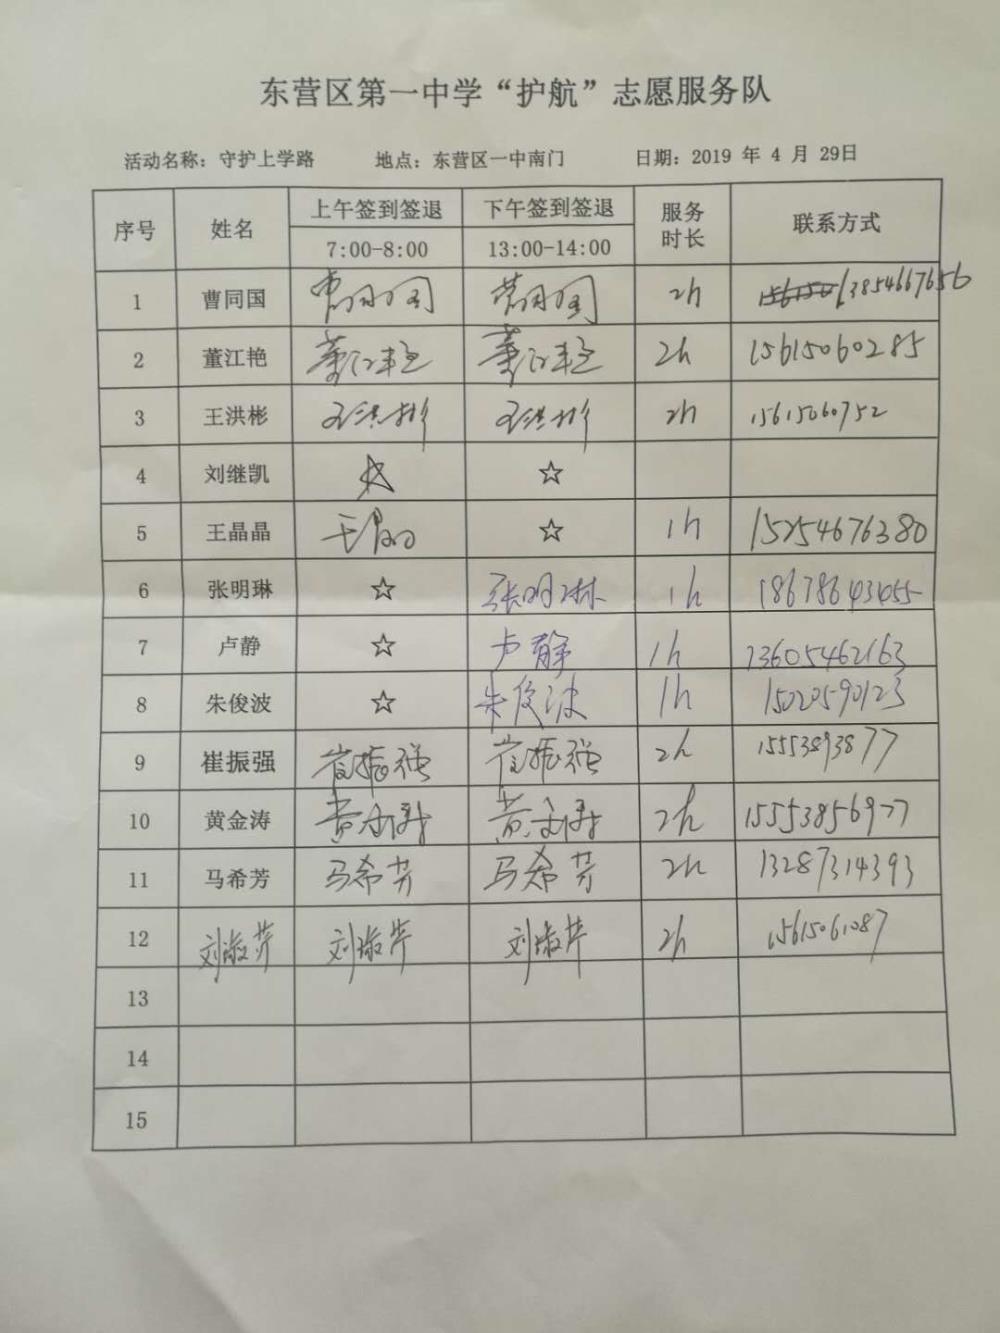 东营区第一中学“护航”志愿服务队
活动名称：守护上学路 地点：东营区一中南门 日期：2019 年 4 月 29日
序号 姓名 上午签到签退 下午签到签退 服务时长 联系方式
7:00-8:00 13:00-14:00
1 曹同国 曹同国 曹同国 2h 13854667656
2 董江艳 董江艳 董江艳 2h 15615060285
3 王洪彬 王洪彬 王洪彬 2h 15615060752
4 刘继凯 ☆ ☆
5 王晶晶 王晶晶 ☆ 1h 15254676380
6 张明琳 ☆ 张明琳 1h 18678643455
7 卢静 ☆ 卢静 1h 13605462163
8 朱俊波 ☆ 朱俊波 1h 15020590123
9 崔振强 崔振强 崔振强 2h 15553893877
10 黄金涛 黄金涛 黄金涛 2h 15553856977
11 马希芳 马希芳 马希芳 2h 13287314393
12 刘淑芹 刘淑芹 刘淑芹 2h 15615061087
13
14
15